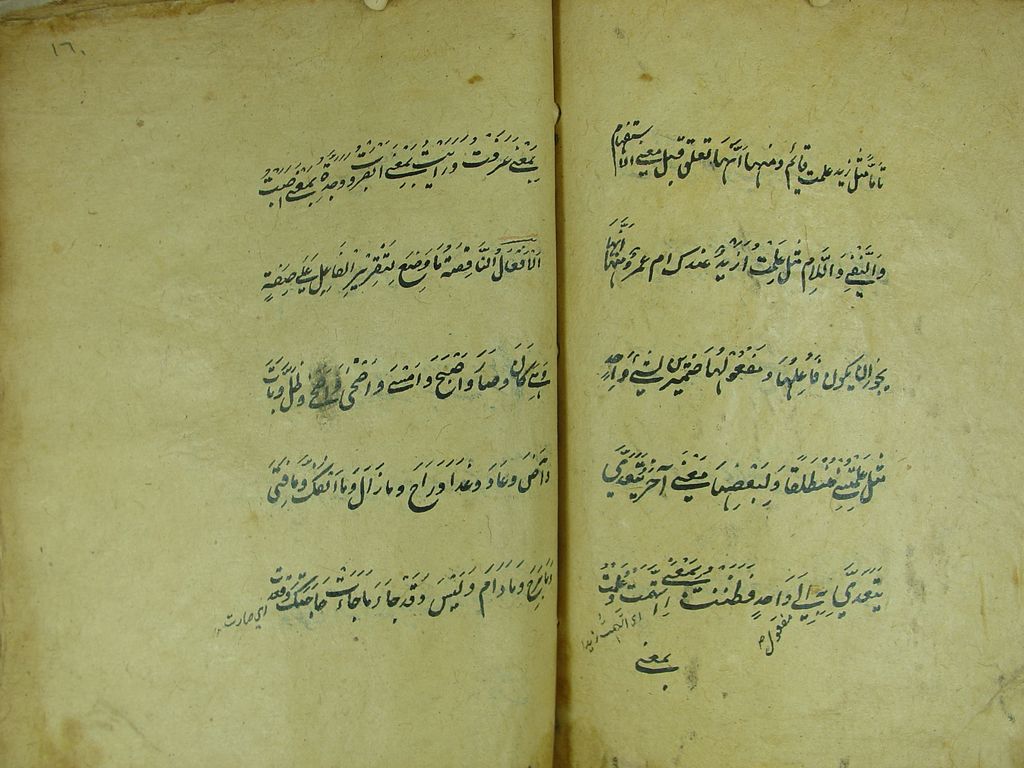 تاما مثل زيد علمت قائم ومنها انها تعلق قبل معنى الاستفهام
والنفي واللام مثل علمت ازيد عندك ام عمرو ومنها انها
يجوز ان يكون فاعلها ومفعولها ضميرين لشيء واحد
مثل علمتني منطلقا ولبعضها معنى آخر يتعدى
يتعدى به الى واحد فظننت بمعنى اتهمت وعلمت
مفعول
اى اتهمت زيدا
بمعنى
١٦٠
بمعنى عرفت ورايت بمعنى ابصرت ووجدت بمعنى اصبت
الافعال الناقصة ما وضع لتقرير الفاعل على صفة
وهي كان وصار واصبح وامسى واضحى وظل وبات
وآض وعاد وغدا وراح وما زال وما انفك وما فتئ
وما برح وما دام وليس وقد جاء ما جاءت حاجتك وقعدت
اي صارت